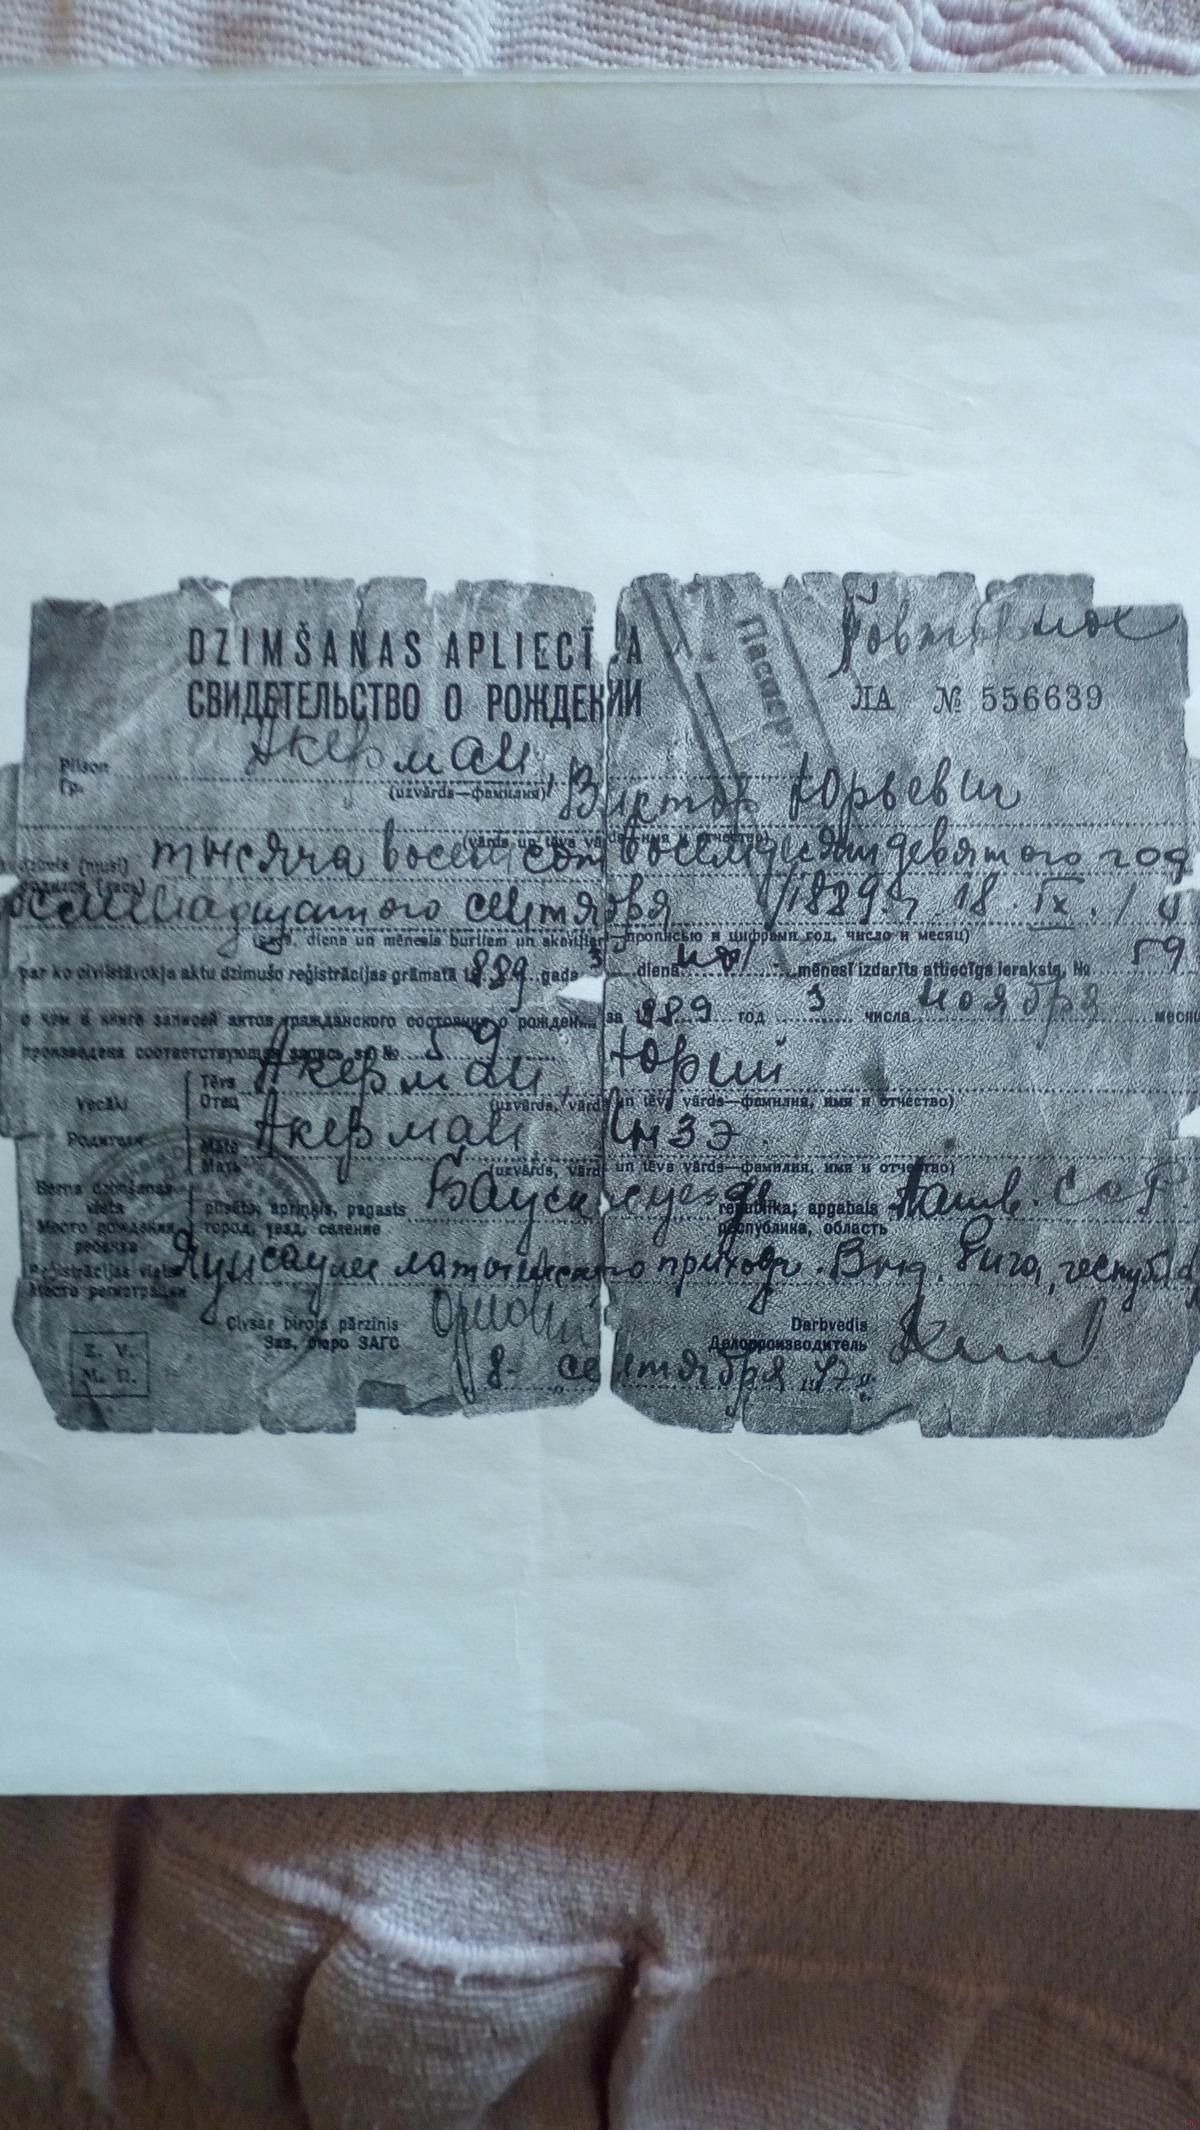 DZIMŠANAS APLIECĪBA
СВИДЕТЕЛЬСТВО О РОЖДЕНИИ
Повторное
Паспорт
ЛА № 556639
Pilson.
Гр.
Акерман,
(uzvārds—фамилия)
Виктор Юрьевич
(vārds un tēva vārds—имя и отчество)
dzimis (musi)
родился (лась)
тысяча восемьсот восемьдесят девятого год
восемнадцатого сентября /1889 г. 18. IX. /
(gads, diena un mēnesis burtiem un skaitļiem—прописью и цифрами год, число и месяц)
par ko civilstāvokļa aktu dzimušo reģistrācijas grāmatā 1889. gada 3 dienā mēnesī izdarīts attiecīgs ieraksts, № 59
о чем в книге записей актов гражданского состояния о рождении за 1889 год 3 числа ноября месяц
произведена соответствующая запись за № 59
Vecāki
Родители
Tēvs
Отец
Акерман, Юрий
(uzvārds, vārds un tēva vārds—фамилия, имя и отчество)
Māte
Мать
Акерман
(uzvārds, vārds un tēva vārds—фамилия, имя и отчество)
Bērna dzimšanas vieta
Место рождения ребенка
pilsēta, apriņķis, pagasts
город, уезд, селение
Бауск уезд
republika, apgabals
республика, область
Латв. ССР
Reģistrācijas vieta
Место регистрации
латышского приход. Выд. Рига,
Civsar biroja pārzinis
Зав. бюро ЗАГС
Darbvedis
Делопроизводитель
Z. V.
М. П.
8 сентября 1947 г.